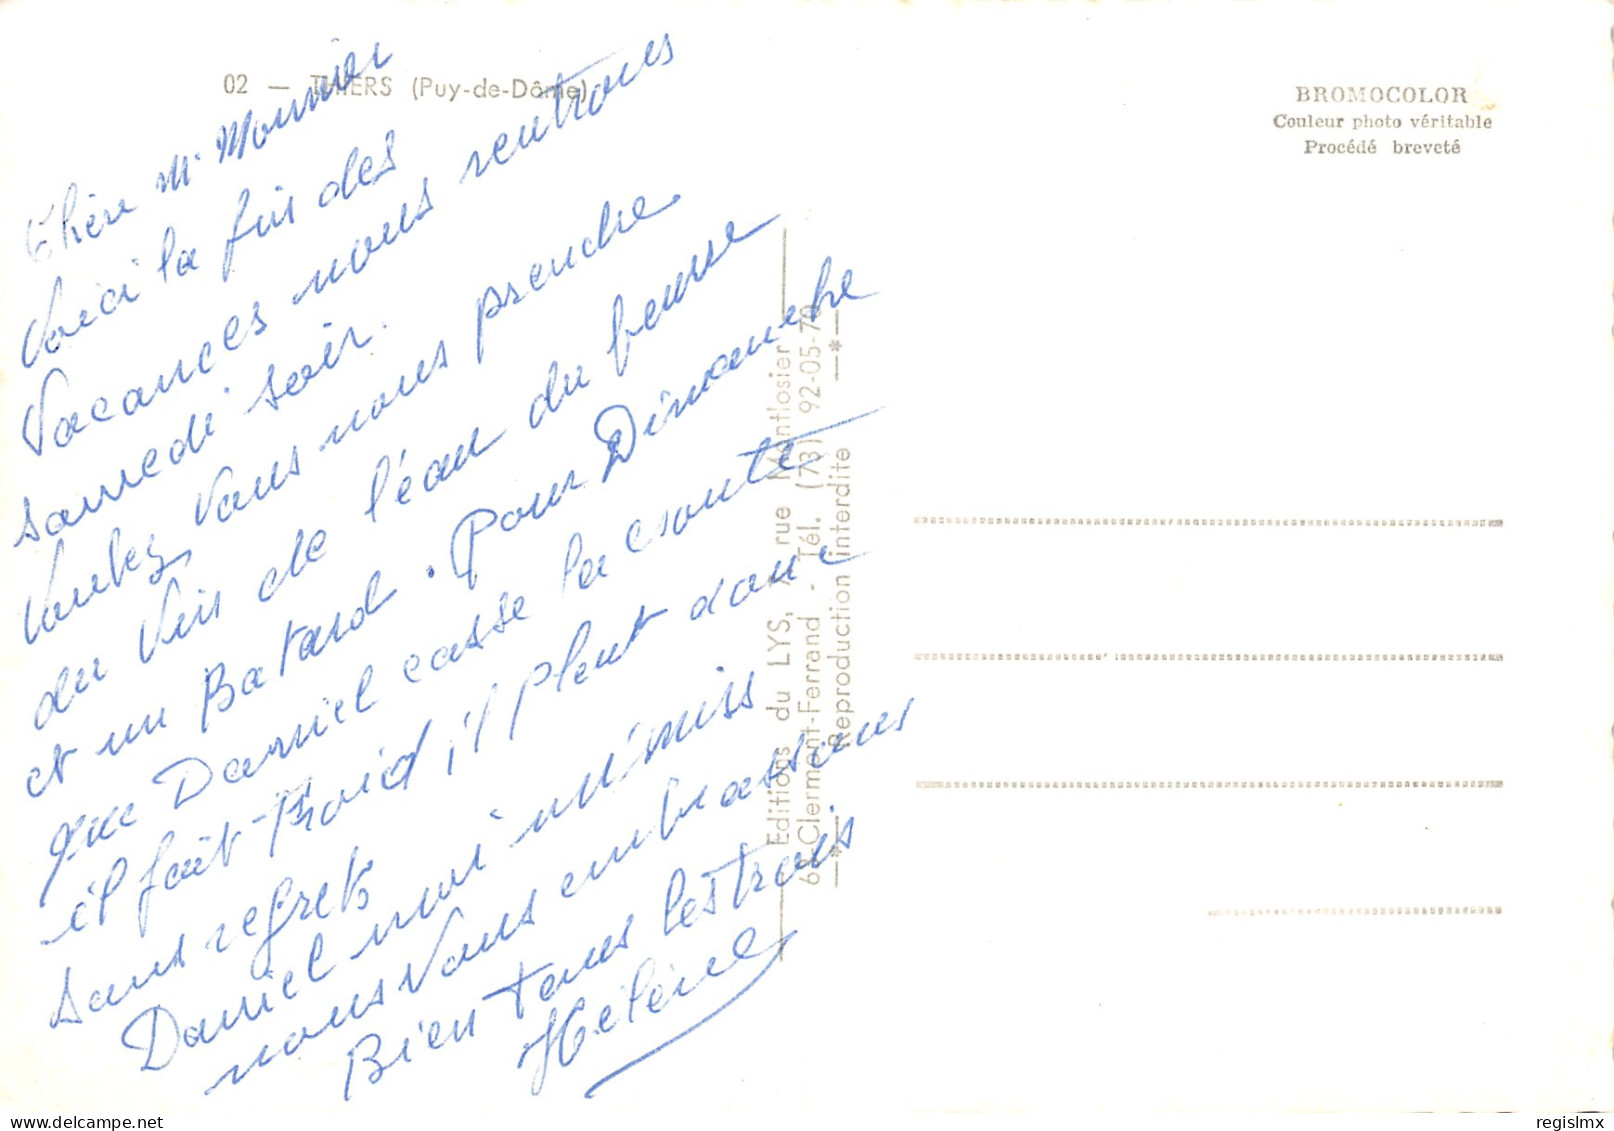 02 — THIERS (Puy-de-Dôme)
BROMOCOLOR
Couleur photo véritable
Procédé breveté
Chère Mr Monnier
Voici la fin des
Vacances nous rentrons
samedi soir.
Voulez Vous nous prendre
du Vin de l'eau du beurre
et un Batard. Pour Dimanche
que Daniel casse la croute
il fait Froid il pleut donc
sans regrets
Daniel moi mimiss
nous Vous embrassons
Bien tous les trois
Hélène
Editions du LYS, rue Montlosier
63-Clermont-Ferrand - Tél. (73) 92-05-70
Reproduction interdite
regislmx